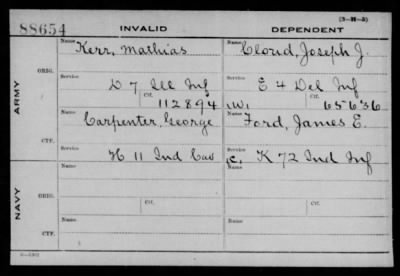 (3-H-5)
88654 INVALID DEPENDENT
ARMY
ORIG.
Name Kerr, Mathias
Name Cloud, Joseph J.
Service D 7 Ill Inf
Service E 4 Del Inf
Ctf. 112894
W. Ctf. 65636
CTF.
Name Carpenter, George
Name Ford, James E.
Service H 11 Ind Cav
Service C. K 72 Ind Inf
NAVY
ORIG.
Name
Name
Service Ctf.
Service Ctf.
CTF.
Name
Name